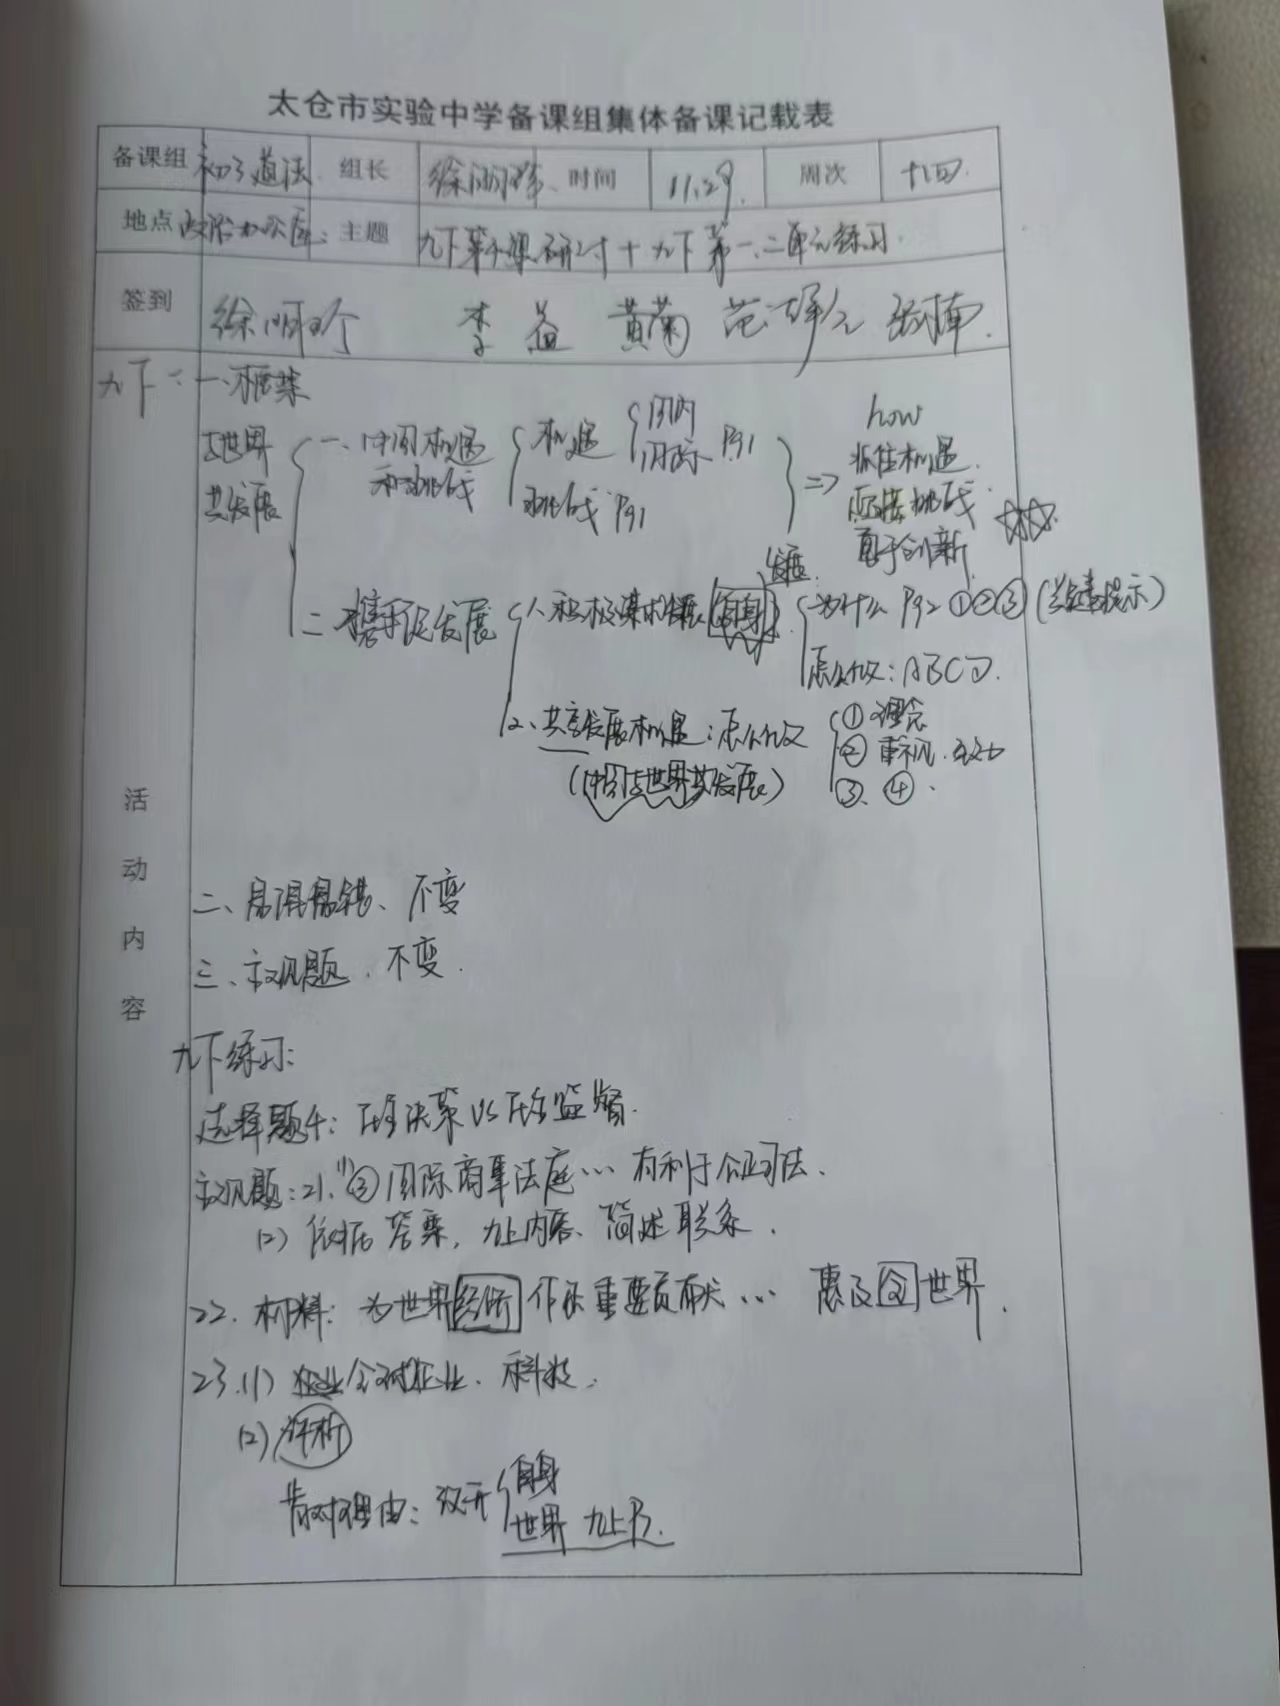 太仓市实验中学备课组集体备课记载表
备课组 初三道法 组长 时间 11.29. 周次 十四.
地点 政治办公室: 主题 九下第课研讨+九下第一、二单元练习.
签到 李益 黄菊
九下: 一、框架
与世界共发展
一、中国机遇和挑战
机遇 国内 国际 P91
挑战 P91
=> how 抓住机遇. 迎接挑战. 勇于创新
二、携手促发展
1、积极谋求发展(自身) 发展.
为什么 P92 ①②③ (关键提示)
怎么做: ABCD.
2、共享发展机遇: 怎么做
(中国与世界共发展)
① 理念
② 重视.
③、④.
活动内容
二、易混易错、不变
三、主观题、不变.
九下练习:
选择题4: 民主决策 vs 民主监督.
主观题: 21.(1)③国际商事法庭… 有利于公正司法.
(2) 依据答案, 九上内容、简述联系.
22. 材料: 为世界经济作出重要贡献… 惠及全世界.
23.(1) 企业企业、科技.
(2) 评析
理由: 改开 自身 世界 九上P3.